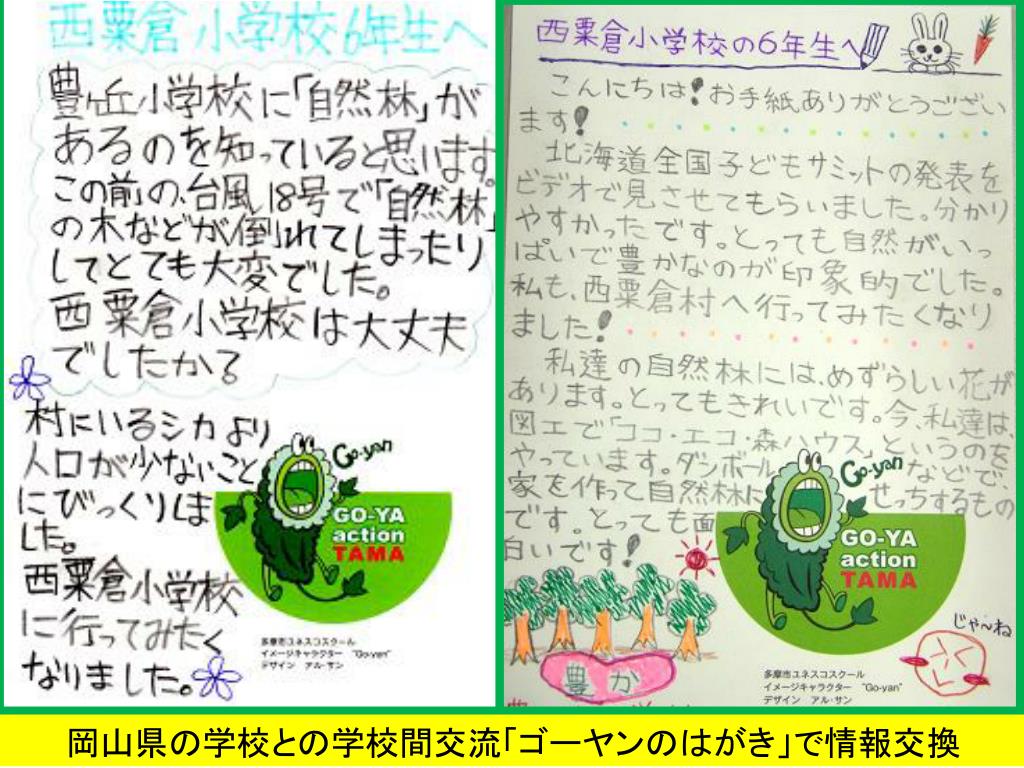 西粟倉小学校6年生へ
豊ヶ丘小学校に「自然林」が
あるのを知っていると思います。
この前の、台風18号で「自然林」
の木などが倒れてしまったり
してとても大変でした。
西粟倉小学校は大丈夫
でしたか?
村にいるシカより
人口が少ないこと
にびっくりしま
した。
西粟倉小学校
に行ってみたく
なりました。
Go-yan
GO-YA
action
TAMA
多摩市ユネスコスクール
イメージキャラクター “Go-yan”
デザイン アル・サン
西粟倉小学校の6年生へ
こんにちは!お手紙ありがとうござい
ます!
北海道全国子どもサミットの発表を
ビデオで見させてもらいました。分かり
やすかったです。とっても自然がいっ
ぱいで豊かなのが印象的でした。
私も、西粟倉村へ行ってみたくなり
ました!
私達の自然林には、めずらしい花が
あります。とってもきれいです。今、私達は、
図工で「ココ・エコ・森ハウス」というのを
やっています。ダンボールなどで、
家を作って自然林にせっちするもの
です。とっても面
白いです!
Go-yan
GO-YA
action
TAMA
じゃ〜ね
豊か
多摩市ユネスコスクール
イメージキャラクター “Go-yan”
デザイン アル・サン
岡山県の学校との学校間交流「ゴーヤンのはがき」で情報交換